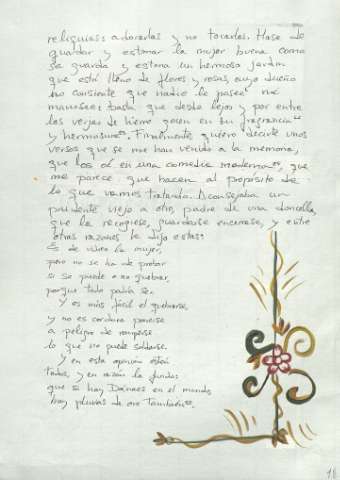 reliquias: adorarlas y no tocarlas. Hase de
guardar y estimar la mujer buena como
se guarda y estima un hermoso jardín
que está lleno de flores y rosas, cuyo dueño
no consiente que nadie le pasee ni
manosee: basta que desde lejos y por entre
las verjas de hierro gocen en su fragancia
y hermosura. Finalmente quiero decirte unos
versos que se me han venido a la memoria,
que los oí en una comedia moderna, que
me parece que hacen al propósito de
lo que vamos tratando. Aconsejaba un
prudente viejo a otro, padre de una doncella,
que la recogiese, guardase y encerrase, y entre
otras razones le dijo estas:
Es de vidrio la mujer,
pero no se ha de probar
si se puede o no quebrar,
porque todo podría ser.
Y es más fácil el quebrarse,
y no es cordura ponerse
a peligro de romperse
lo que no puede soldarse.
Y en esta opinión estén
todos, y en razón la fundo:
que si hay Dánaes en el mundo,
hay pluvias de oro también.